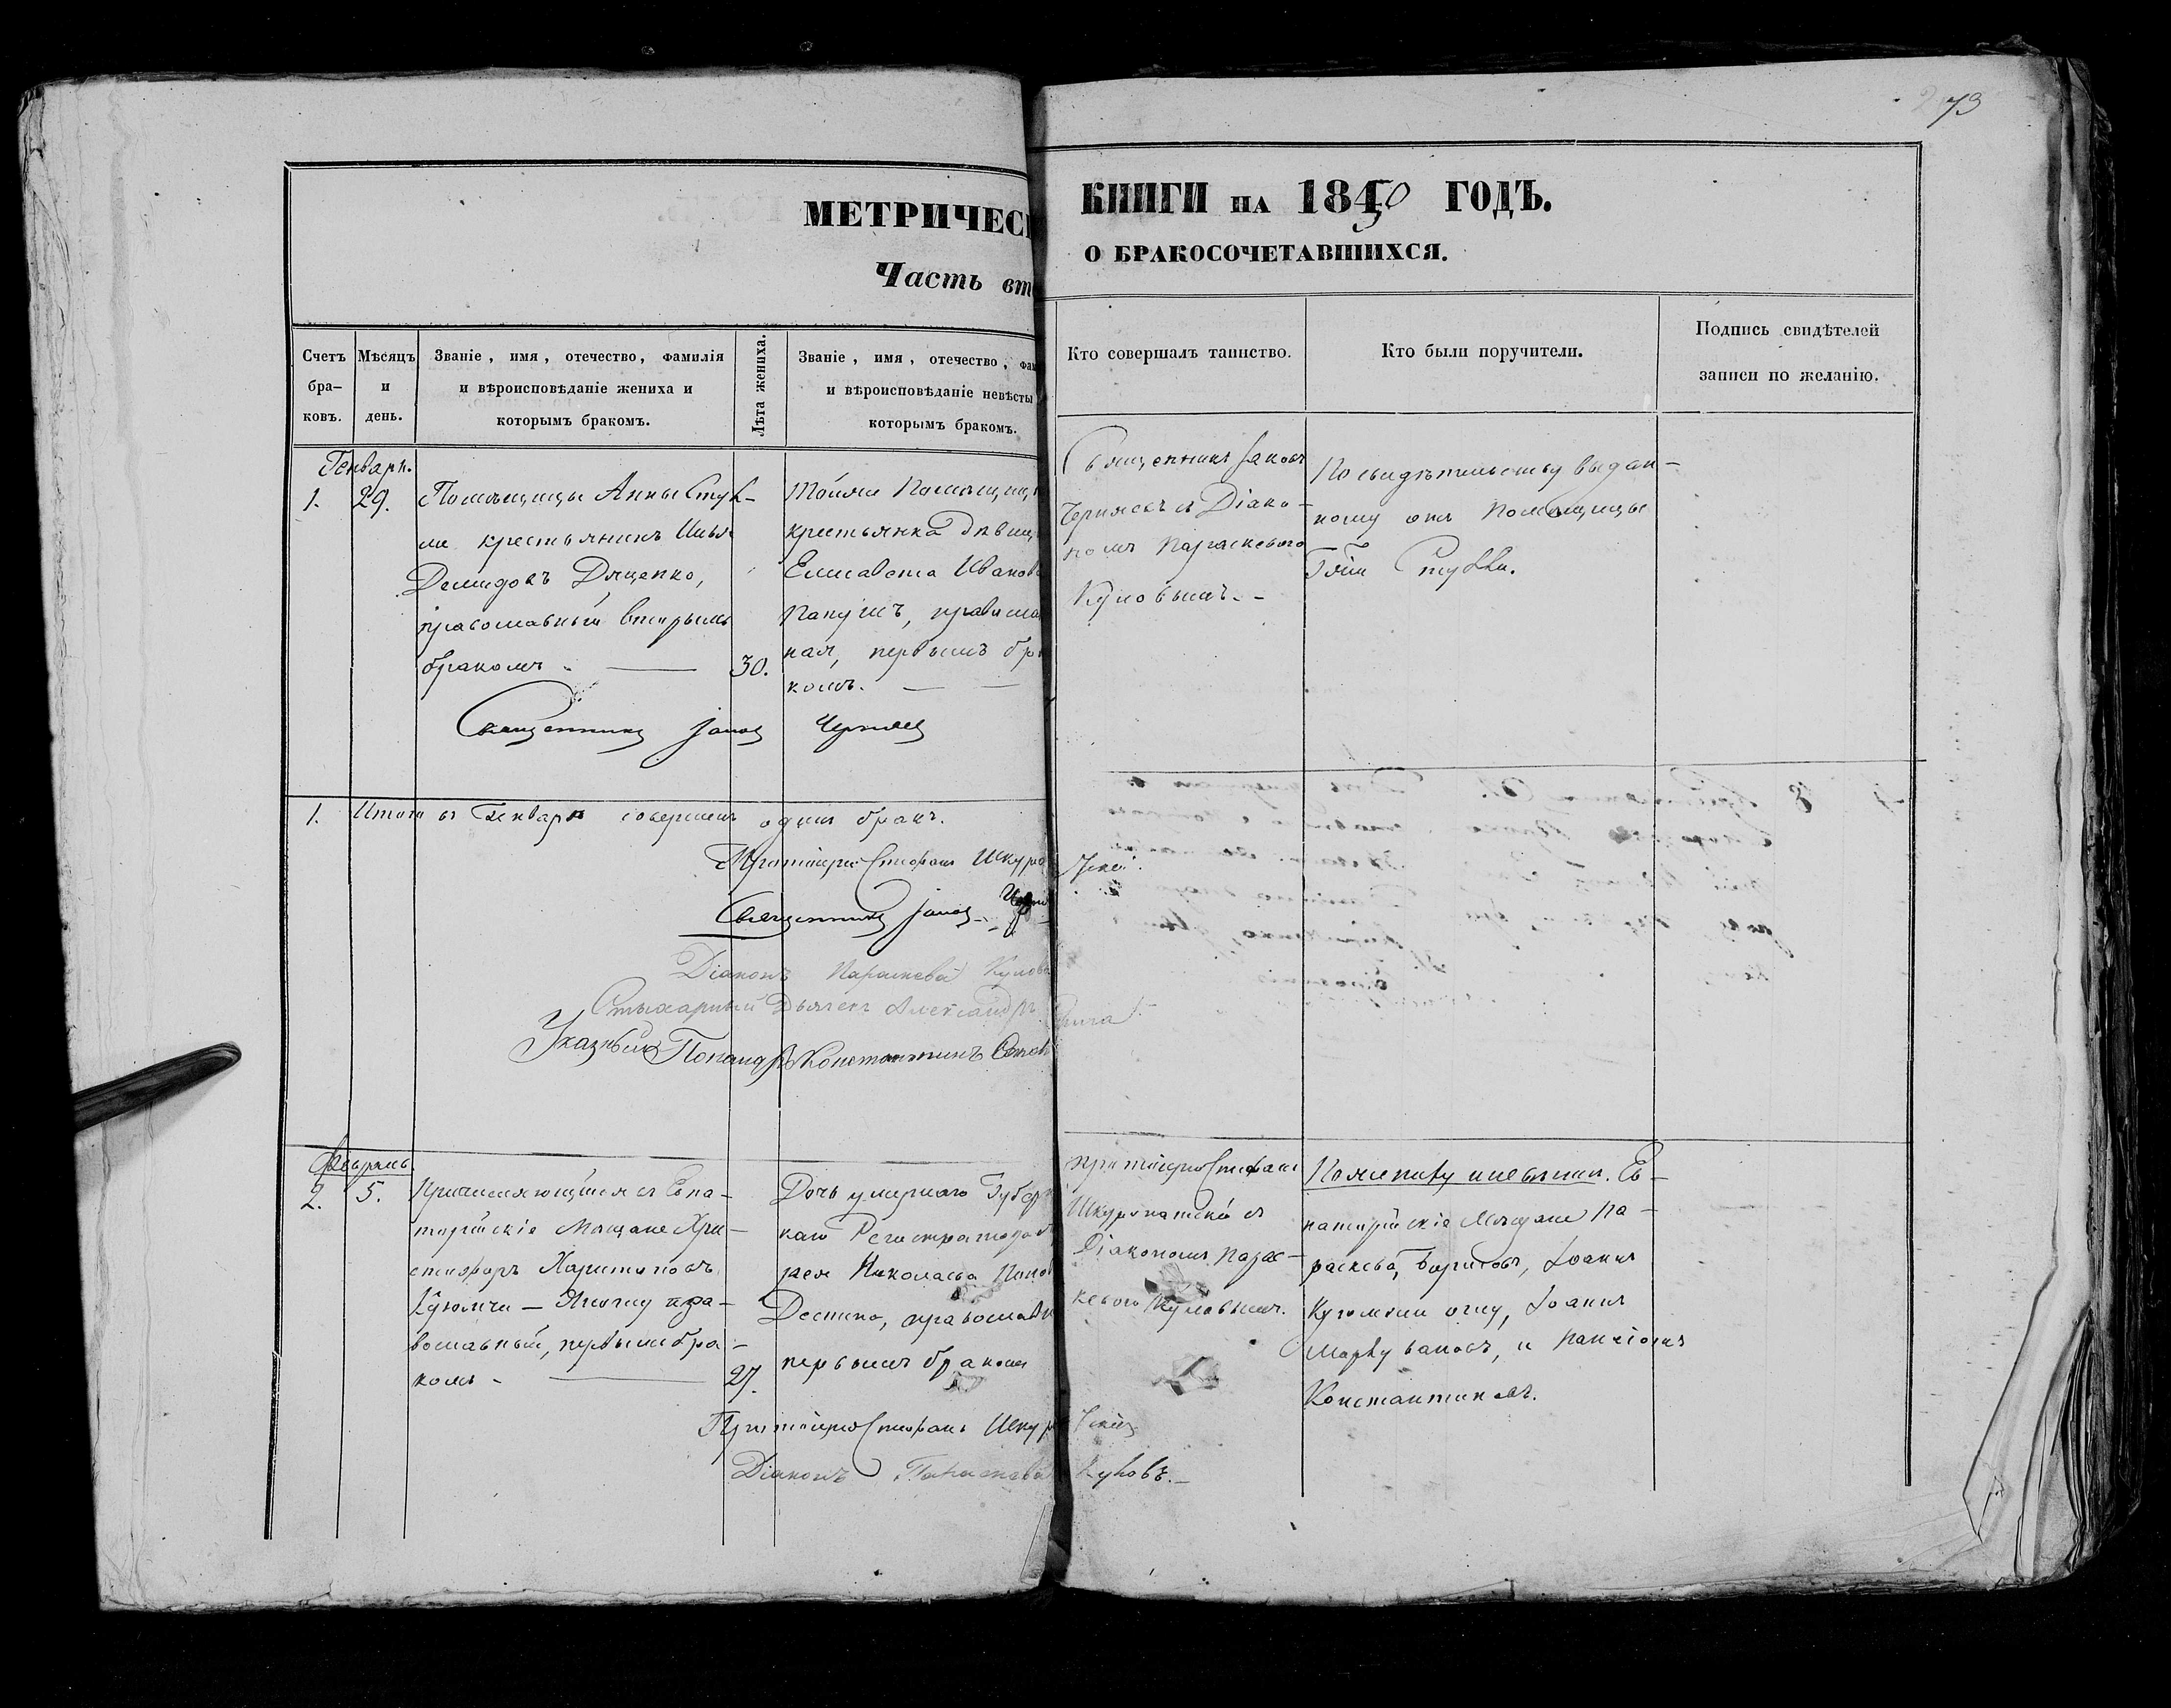 73
МЕТРИЧЕС
КНИГИ НА 1850 ГОДЪ.
Часть вт
О БРАКОСОЧЕТАВШИХСЯ.
Счетъ бра- ковъ.
Мѣсяцъ и день.
Званіе, имя, отечество, фамилія
и вѣроисповѣданіе жениха и
которымъ бракомъ.
Лѣта жениха.
Званіе, имя, отечество, фам
и вѣроисповѣданіе невѣсты
которымъ бракомъ.
Кто совершалъ таинство.
Кто были поручители.
Подпись свидѣтелей
записи по желанію.
Генварь.
1. 29.
Помѣщицы Анны
крестьянинъ Илья
Демидовъ Дяценко,
православный вторымъ
бракомъ. 30.
Тойже Помѣщиц
крестьянка дѣвиц
Елисавета Иванов
православ
ная, первымъ бра
комъ.
Священникъ Іаковъ
Чернясъ съ Діако-
номъ Параскевою
Куловымъ.
По свидѣтельству выдан-
ному отъ помѣщицы
Священникъ Іаковъ
1. Итого въ Генварѣ совершенъ одинъ бракъ.
Протоіерей Стефанъ Шкуропатскій
Священникъ Іаковъ
Діаконъ Параскева Кулов
Стихарный Дьячекъ Александръ
Указный Пономарь Константинъ
Февраль.
2. 5.
Причисляющійся въ Евпа-
торійскіе Мѣщане Хри-
стофоръ Харитоновъ
пра-
вославный, первымъ бра-
комъ. 27.
Дочь умершаго Губерн
каго Регистратора
Николаева
православн
первымъ бракомъ
Протоіерей Стефанъ
Шкуропатскій съ
Діакономъ Парас-
кевою Куловымъ.
По жениху и невѣстѣ. Ев-
паторійскіе Мѣщане Па-
раскева Іоаннъ
Іоаннъ
и
Константиновъ.
Протоіерей Стефанъ Шкуропатскій
Діаконъ Параскева Куловъ.